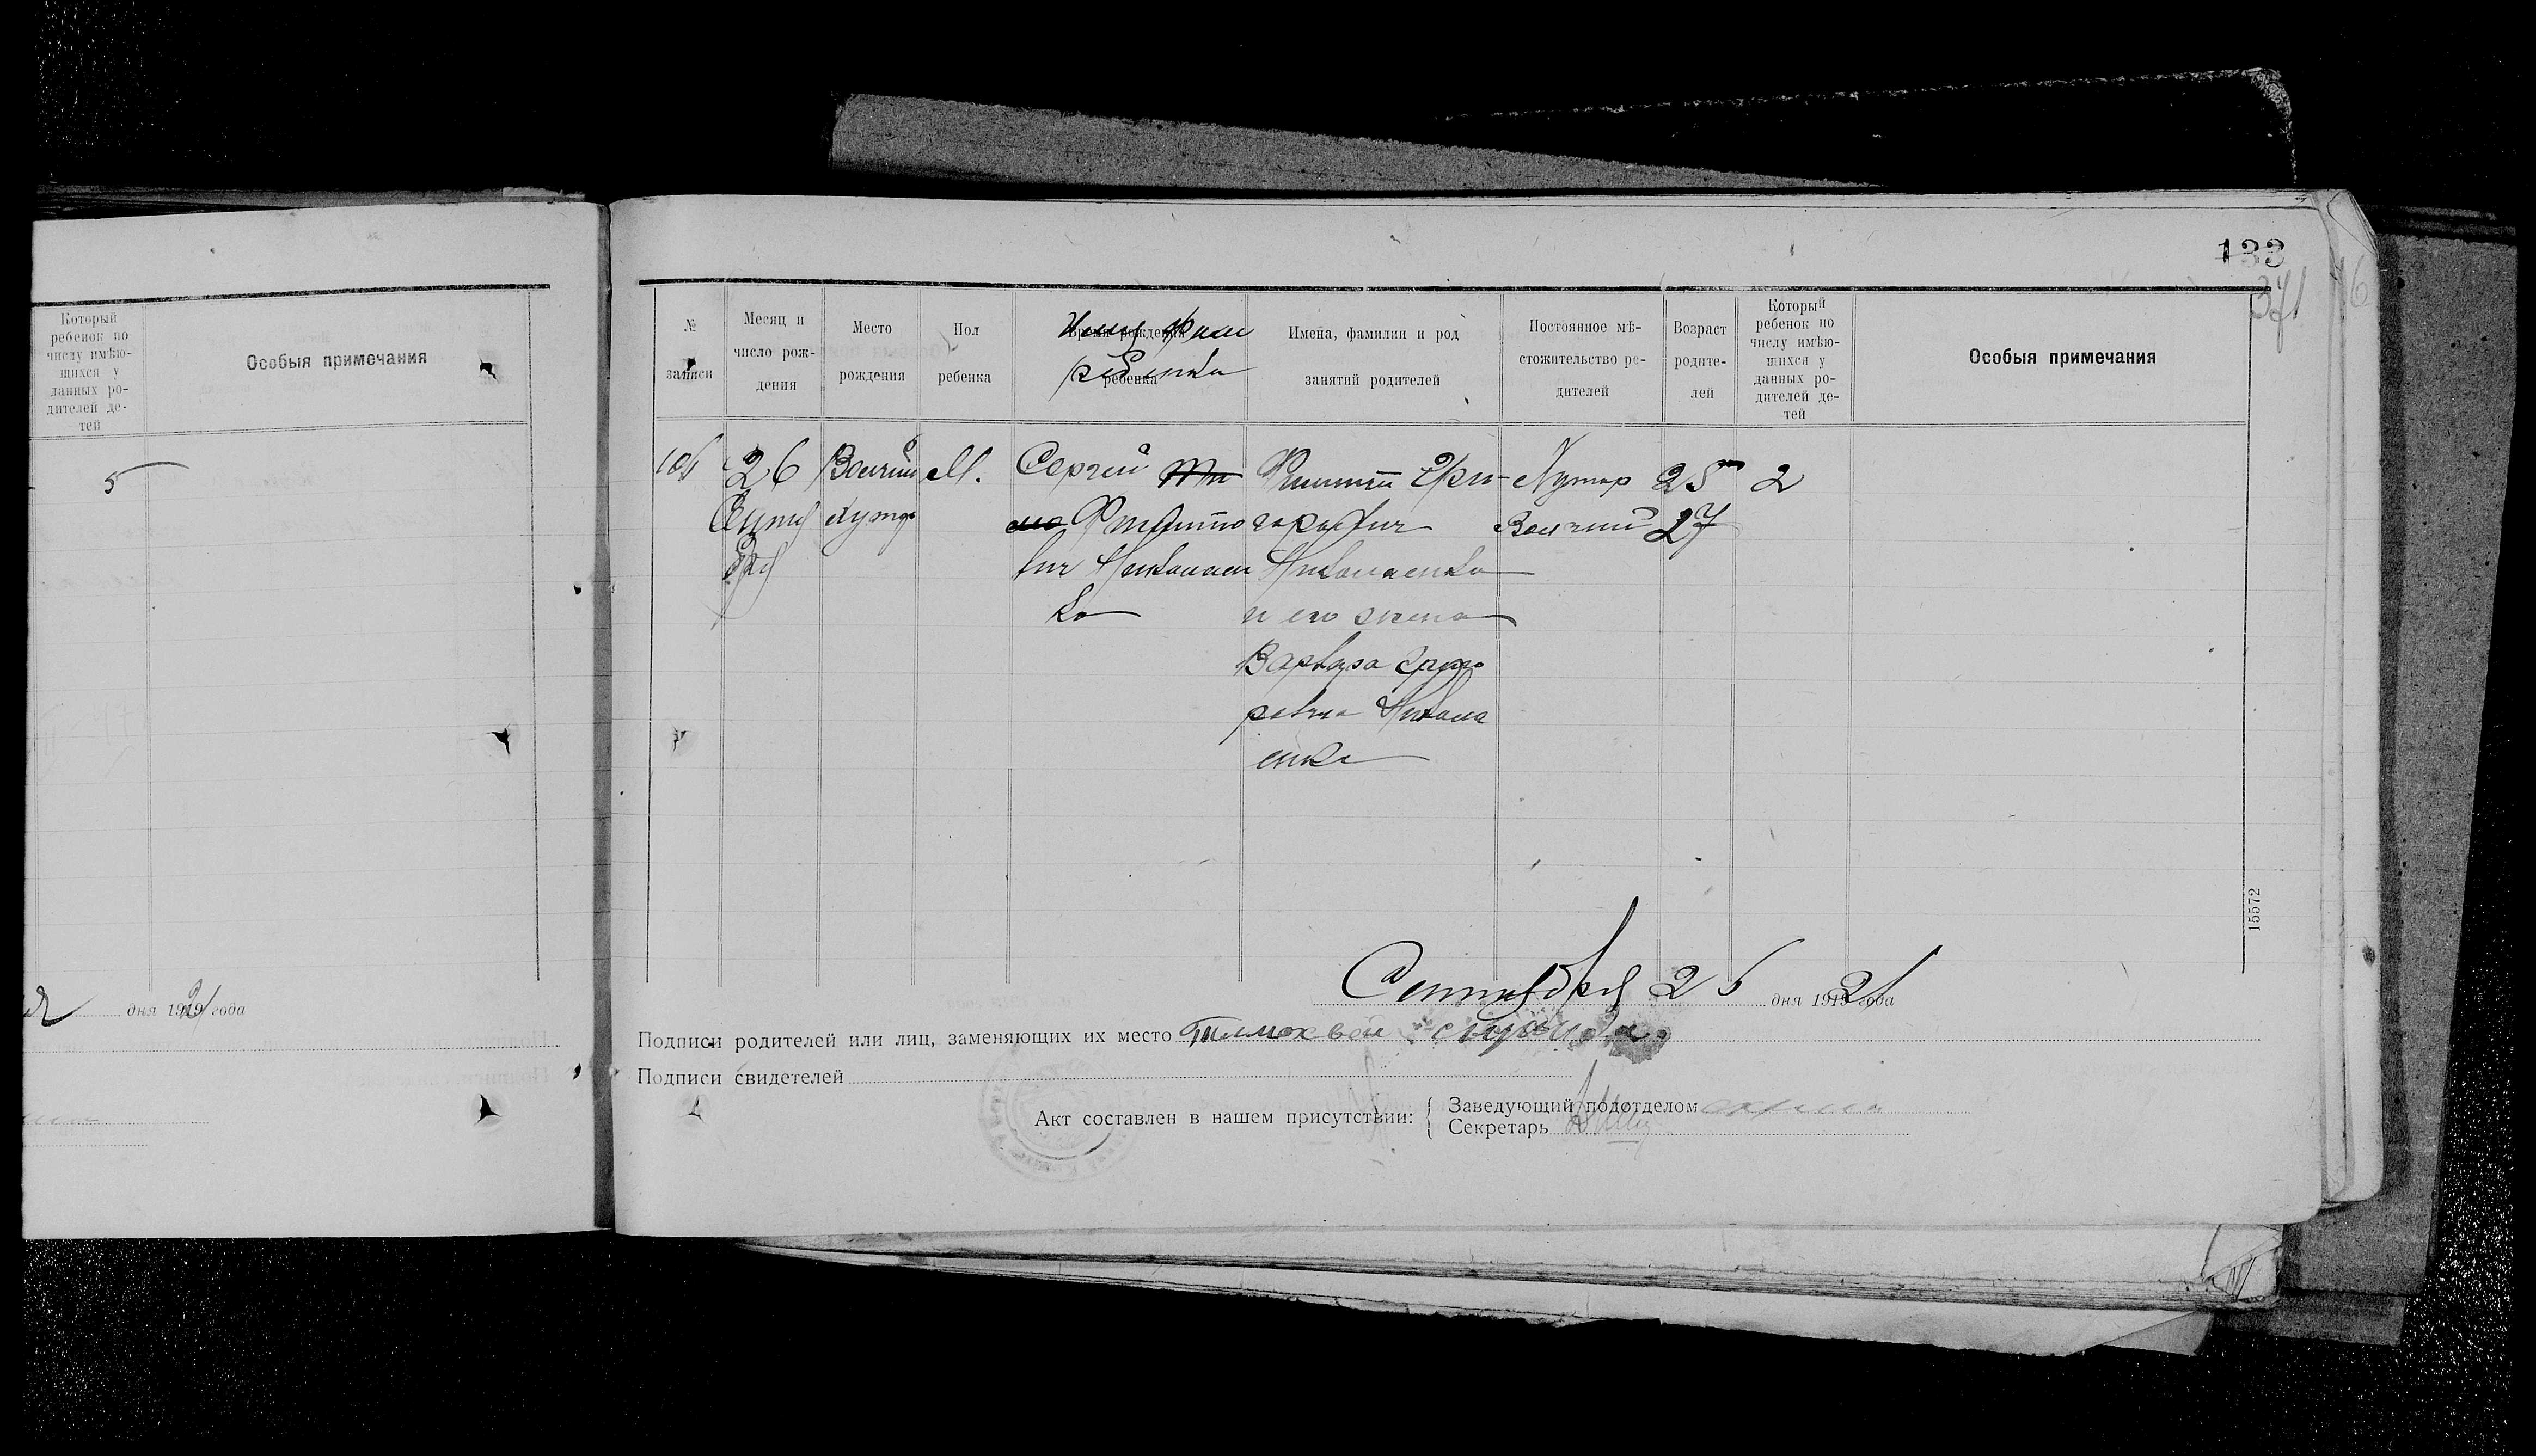 133
371
16
Который
ребенок по
числу имѣю-
щихся у
данных ро-
дителей де-
тей
Особыя примечания
5
дня 1921 года
№
записи
Месяц и
число рож-
дения
Место
рождения
Пол
ребенка
Время рождения
ребенка
Имя, фам
ребенка
Имена, фамилии и род
занятий родителей
Постоянное мѣ-
стожительство ро-
дителей
Возраст
родите-
лей
Который
ребенок по
числу имѣю-
щихся у
данных ро-
дителей де-
тей
Особыя примечания
26
Сентя
бря
хутор
М.
Сергей
Филиппо
вич Николаен
ко
Филипп Гри-
горьевич
Николаенко
и его жена
Варвара Григо
рьевна Никола
енко
Хутор
25
27
2
15572
Сентября 26 дня 1921 года
Подписи родителей или лиц, заменяющих их место
Подписи свидетелей
Акт составлен в нашем присутствии:
Заведующий подотделом
Секретарь